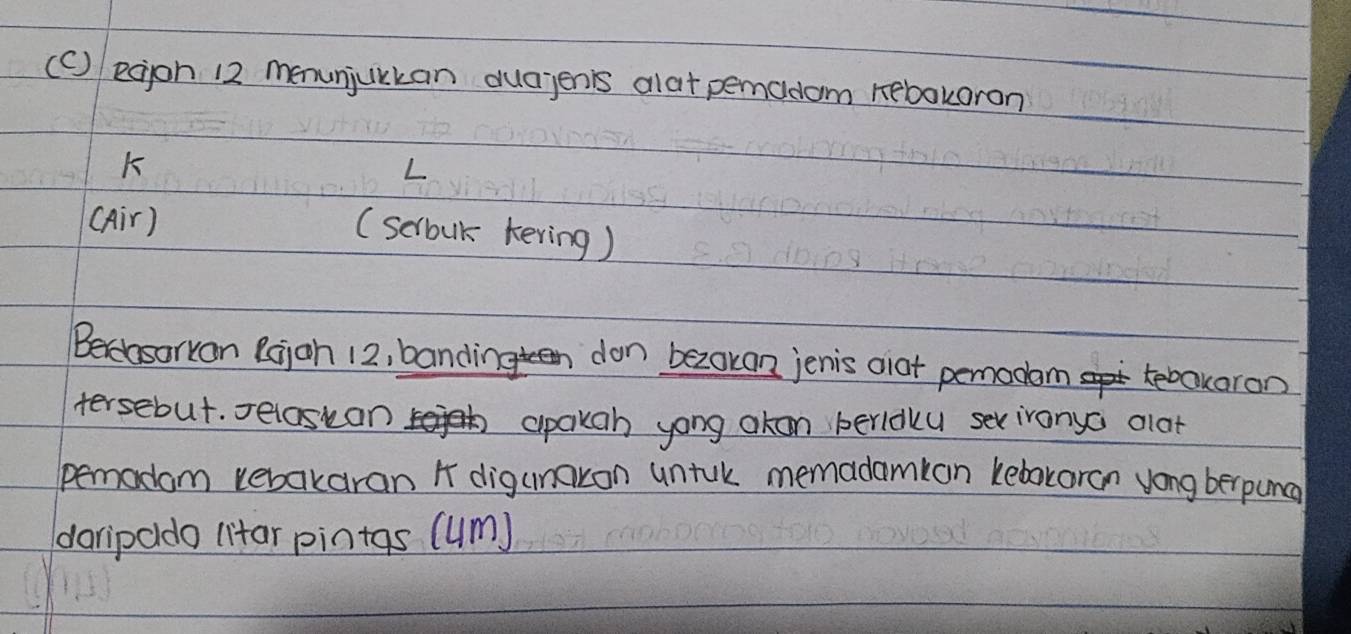 (c) Rajah 12 menunjukkan dua jenis alat pemadam kebakaran
K L
(Air) (Serbuk kering)
Berdasarkan Rajah 12, banding dan bezakan jenis alat pemadam kebakaran
tersebut. Jelaskan apakah yang akan berlaku sekiranya alat
pemadam kebakaran K digunakan untuk memadamkan kebakaran yang berpunca
daripada litar pintas (4m)